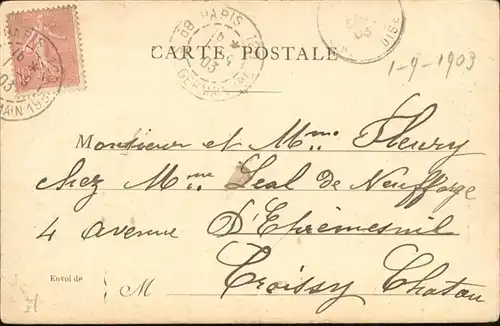 PARIS
03
CARTE POSTALE
1-9-1903
Monsieur et Mme Fleury
chez Mme Leal de Neufforge
4 avenue D'Eprémesnil
Envoi de
M
Croissy Chatou